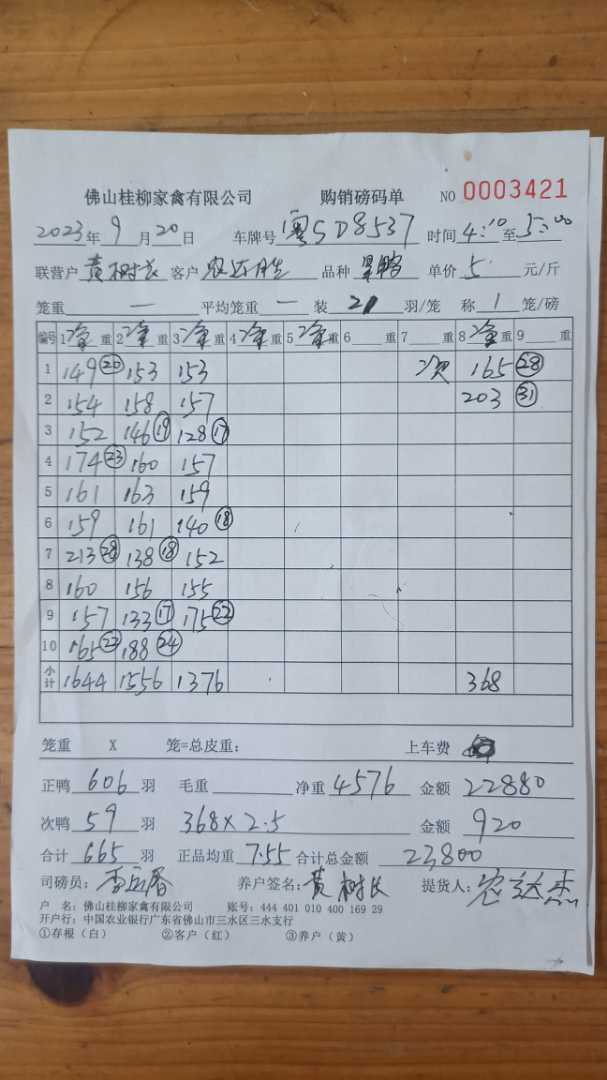 佛山桂柳家禽有限公司 购销磅码单 NO 0003421
2023年 9月 20日 车牌号 粤SD8537 时间 4:10 至 5:00
联营户 黄树长 客户 农达杰 品种 单价 5 元/斤
笼重 — 平均笼重 — 装 21 羽/笼 称 1 笼/磅
编号 1净重 2净重 3净重 4净重 5净重 6 重 7 重 8净重 9 重
1 149 ⑳ 153 153 次 165 ㉘
2 154 158 157 203 ㉛
3 152 146 ⑲ 128 ⑰
4 174 ㉓ 160 157
5 161 163 159
6 159 161 140 ⑱
7 213 ㉘ 138 ⑱ 152
8 160 156 155
9 157 133 ⑰ 175 ㉒
10 165 ㉒ 188 ㉔
小计 1644 1556 1376 368
笼重 X 笼=总皮重: 上车费
正鸭 606 羽 毛重 净重 4576 金额 22880
次鸭 59 羽 368×2.5 金额 920
合计 665 羽 正品均重 7.55 合计总金额 23800
司磅员: 养户签名: 黄树长 提货人: 农达杰
户 名: 佛山桂柳家禽有限公司 账号: 444 401 010 400 169 29
开户行: 中国农业银行广东省佛山市三水区三水支行
①存根(白) ②客户(红) ③养户(黄)